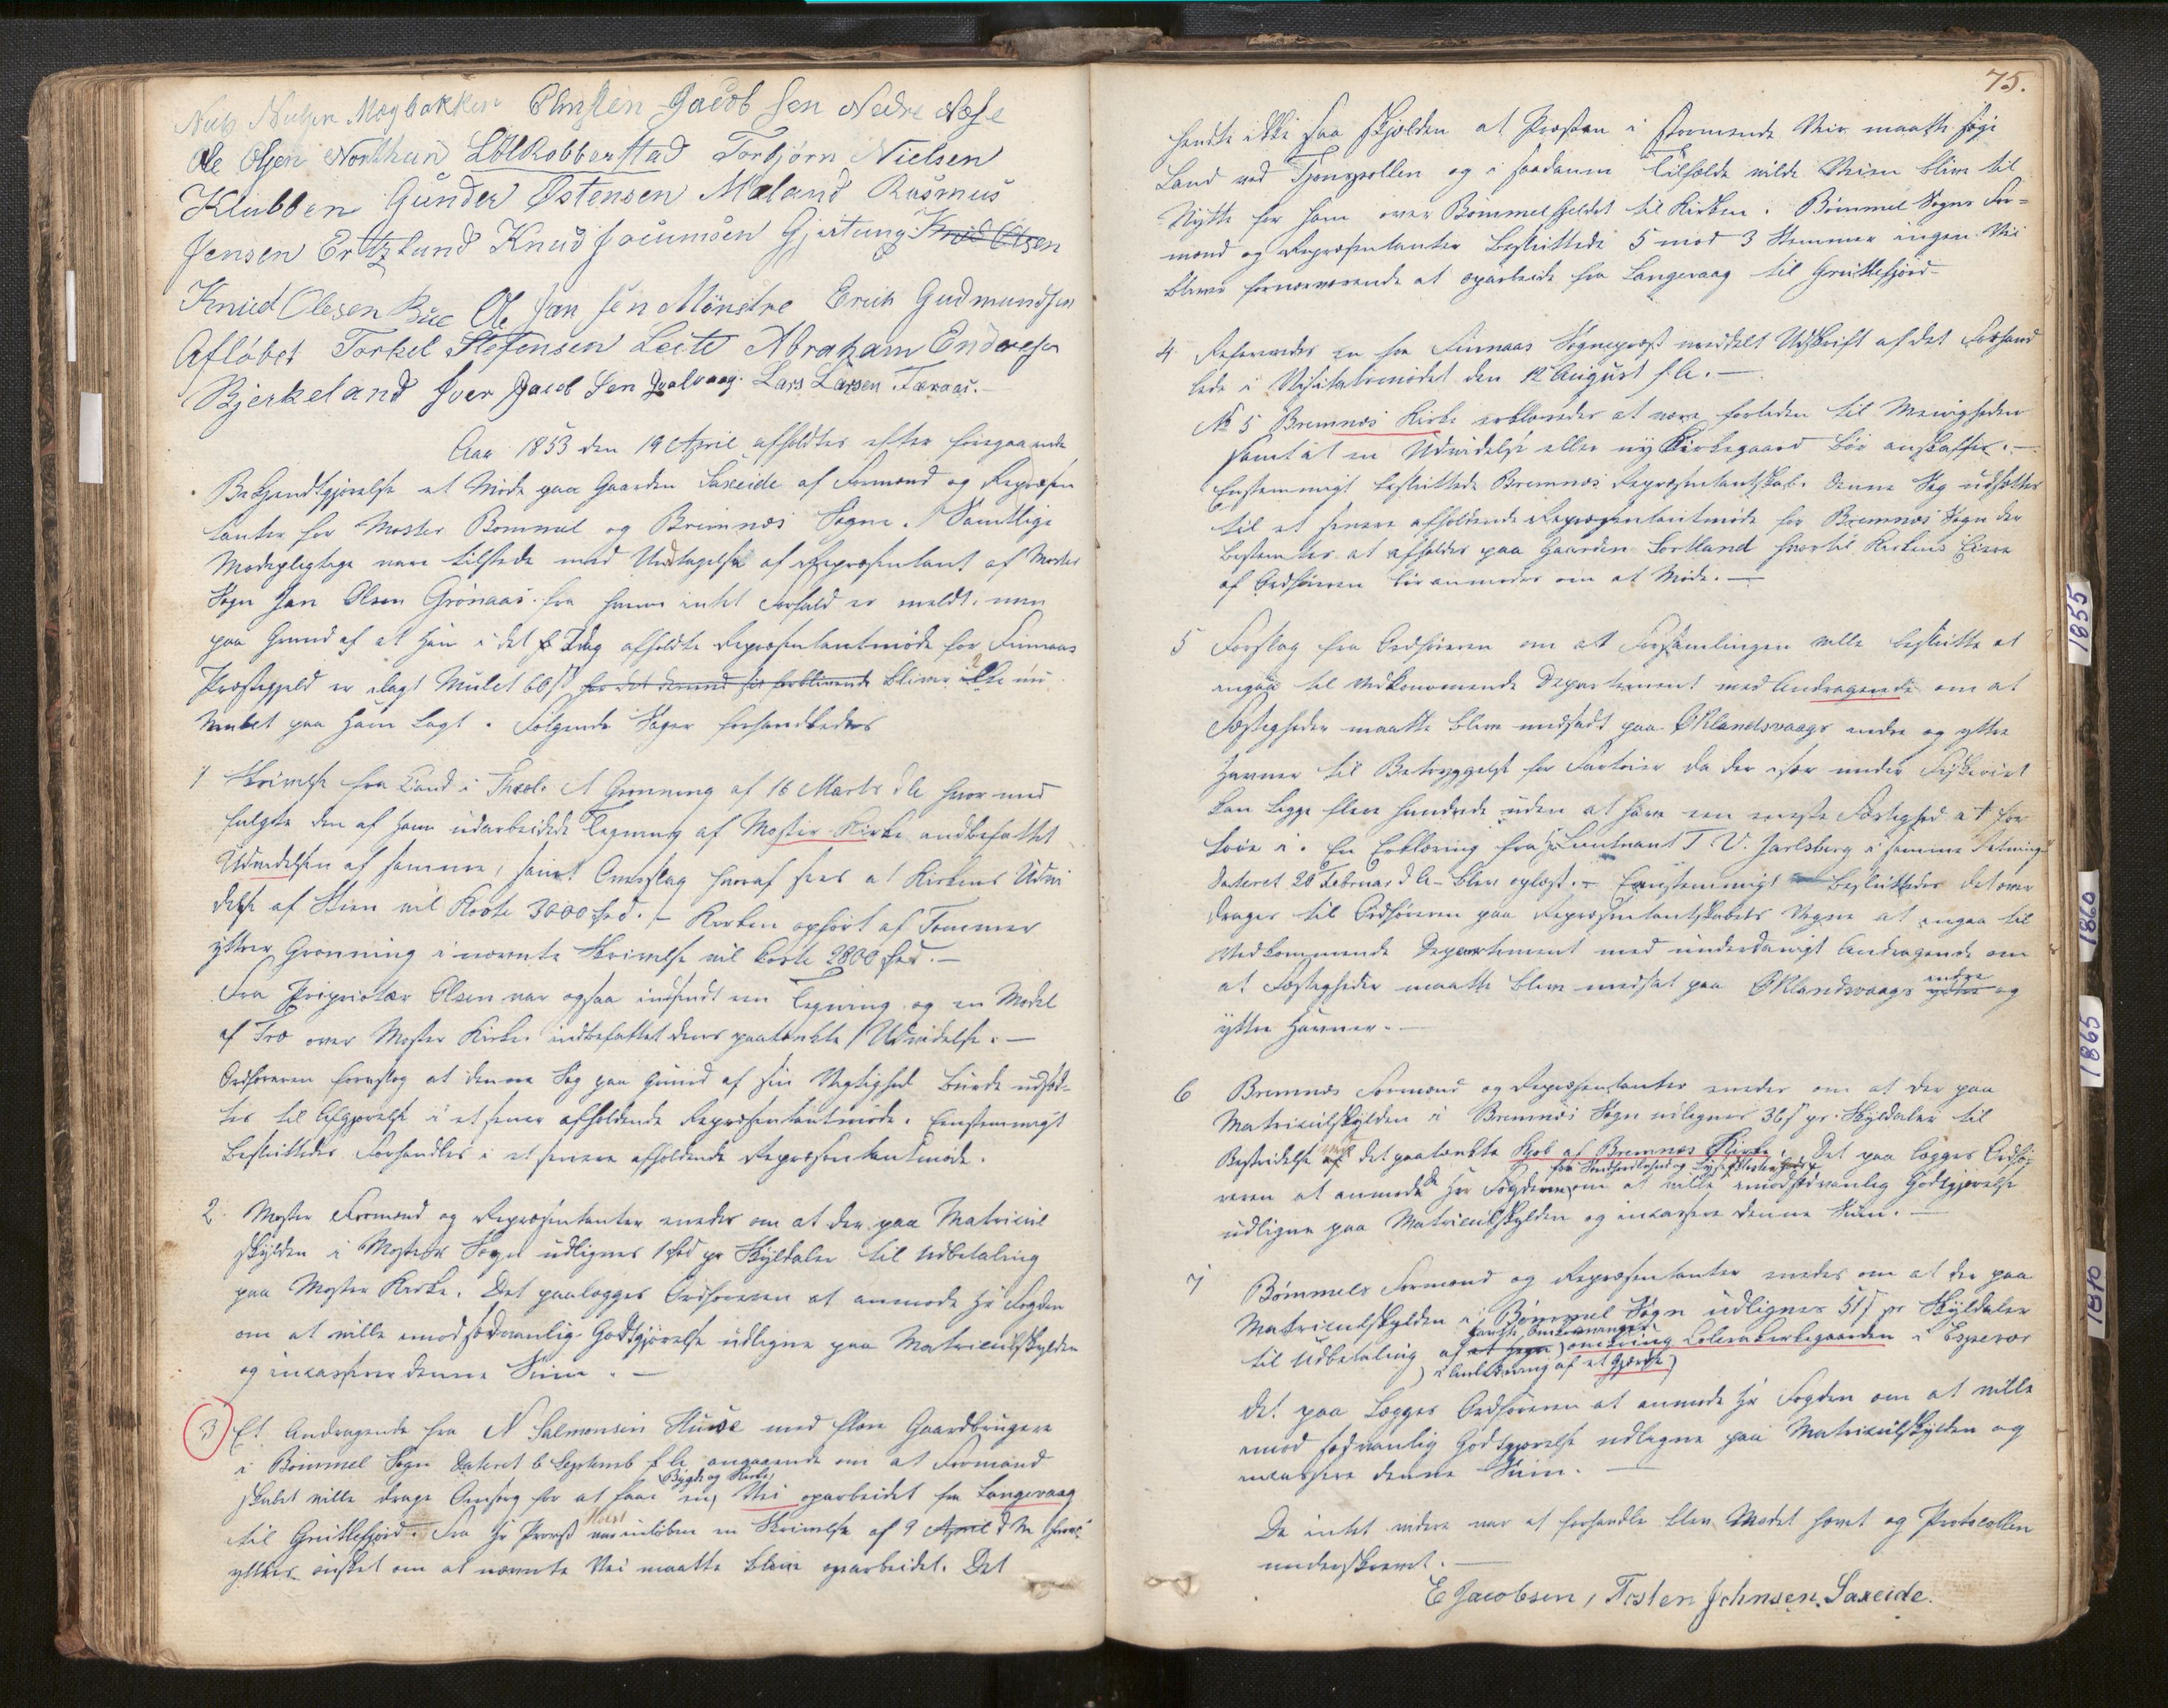 Niels Nielsen Møgbakken Elmsten Jacob sen Nedre Næse
Ole Olsen Northun LOlRobberstad Torbjørn Nielsen
Klubben Gunder Østensen Mæland Rasmus
Jensen Ertzland Knud Joeumsen Gjertung Knud Olsen
Knud Olesen Bue Ole Jan sen Mønstre Erik Gudmundsen
Afløbet Torkel Stefensen Leite Abraham Endresen
Bjerkeland Iver Jacob Sen Qvalvaag. Lars Larsen Færaas.
Aar 1853 den 19 April afholdtes efter foregaaende
Bekjendtgjørelse et Møde paa Gaarden Saxeide af Formænd og Repræsen
tanter for Moster Bømmel og Bremnæs Sogne. Samtlige
Mødepligtige vare tilstede med Undtagelse af Repræsentant af Moster
Sogn Jan Olsen Grønaas fra hvem intet Forfald er meldt, men
paa Grund af at han i det f Idag afholdte Repræsentantmøde for Finnaas
Præstegjeld er ilagt Mulct 60 s for det Brund sit forblivende bliver ikke nu
Mulct paa ham lagt. Følgende Sager forhandledes
1 Skrivelse fra Cand. i Theol. A Grønning af 16 Marts d A hvor med
fulgte den af ham udarbeidede Tegning af Moster Kirke andbefattet
Udvidelsen af samme, samt Overslag hvoraf sees at Kirkens Udvi
delse af Steen vil Koste 3000 Spd. Kirken opført af Tømmer
yttrer Grønning i nævnte Skrivelse vil koste 2800 Spd.
Fra Propriotær Olsen var ogsaa indsendt en Tegning og en Model
af Træ over Moster Kirke indbefattet dens paatænkte Udvidelse.
Ordføreren foreslog at denne Sag paa Grund af sin Vigtighed burde udsæt-
tes til Afgjørelse i et senere afholdende Repræsentantmøde. Eenstemmigt
besluttedes Forhandles i et senere afholdende Repræsentantmøde.
2 Moster Formænd og Repræsentanter enedes om at der paa Matricul
skylden i Mosters Sogn udlignes 1 Spd pr Skyldaler til Udbetaling
paa Moster Kirke. Det paalægges Ordføreren at anmode Hr Fogden
om at ville imod sædvanlig Godtgjørelse udligne paa Matriculskylden
og incassere denne Sum.
3 Et Andragende fra N Salmonsen Huse med flere Gaardbrugere
i Bømmel Sogn dateret 6 Septemb f A angaaende om at Formand
skabet ville drage Omsorg for at faae en Bygde og Kirke Vei oparbeidet fra Langevaag
til Gruttlefjord. Fra Hr Provst Horst var indløben en Skrivelse af 9 April d A hvori
yttres ønsket om at nævnte Vei maatte blive oparbeidet. Det
75.
hendte ikke saa skjælden at Præsten i stormende Veir maatte søge
Land ved Tjongspollen og i saadanne Tilfælde vilde Veien blive til
Nytte for ham over Bømmel Geldet til Kirken. Bømmel Sogns For-
mænd og Repræsentanter besluttede 5 mod 3 Stemmer ingen Vei
bliver fornærværende at oparbeide fra Langevaag til Gruttlefjord
4 Refereredes en fra Finnaas Sognepræst meddelt Udskrift af det Forhand
lede i Visitatsmødet den 12 August f. A.
No 5 Bremnæs Kirke erklæredes at være forliden til Menigheden
samt at en Udvidelse eller ny Kirkegaard bør anskaffes.
Enstemmigt besluttede Bremnæs Repræsentantskab. Denne Sag udsættes
til et senere afholdende Repræsentantmøde for Bremnæs Sogn der
bestemtes at afholdes paa Gaarden Sortland hvortil Kirkens Eiere
af Ordføreren bør anmodes om at Møde.
5 Forslag fra Ordføreren om at Forsamlingen ville beslutte at
ingaa til Vedkommende Departement med Andragende om at
Fæstigheder maatte blive nedsadt paa Øklandsvaags indre og yttre
Havner til Betryggelse for Fartøier da der især under Fiskeriet
kan ligge flere Hundrede uden at have een eneste Fæstighed at for
tøie i. En Erklæring fra Leutnant T V. Jarlsberg i samme Retning
dateret 20 Februar d A blev oplæst. Enstemmigt besluttedes det over
drages til Ordføreren paa Repræsentantskabets Vegne at ingaa til
Vedkommende Departement med underdanigt Andragende om
at Fæstigheder maatte blive nedsat paa Øklandsvaags ydre indre og
yttre Havner.
6 Bremnæs Formænd og Repræsentanter enedes om at der paa
Matriculskylden i Bremnæs Sogn udlignes 36 s pr. Skyldaler til
Bestridelse af ved det paatænkte Kjøb af Bremnæs Kirke. Det paa lægges Ordfø
reren at anmode Hr Fogderne om at ville imod sædvanlig Godtgjørelse
udligne paa Matriculskylden og incassere denne Sum.
7 Bømmels Formænd og Repræsentanter enedes om at der paa
Matriculskylden i Bømmel Sogn udlignes 51 s pr Skyldaler
til Udbetaling af et Hegn omkring Colerakirkegaarden i Espevær
i Anledning af et Gjærde
det paa lægges Ordføreren at anmode Hr Fogden om at ville
imod sædvanlig Godtgjørelse udligne paa Matriculskylden og
incassere denne Sum.
Da intet videre var at forhandle blev Mødet hævet og Protocollen
underskrevet.
E Jacobsen, Tosten Johnsen Saxeide.
1855
1860
1865
1870